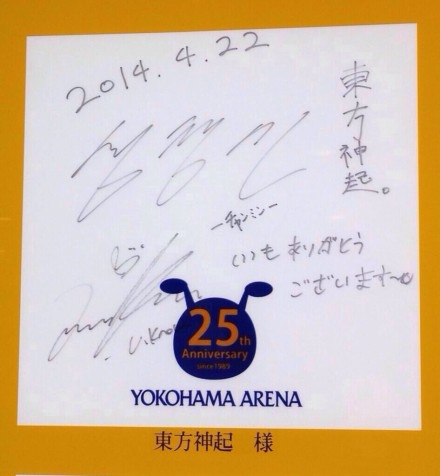 2014.4.22
東方神起。
ーチャンミンー
いつも ありがとう
ございます〜
U-Know
25th
Anniversary
since1989
YOKOHAMA ARENA
東方神起 様